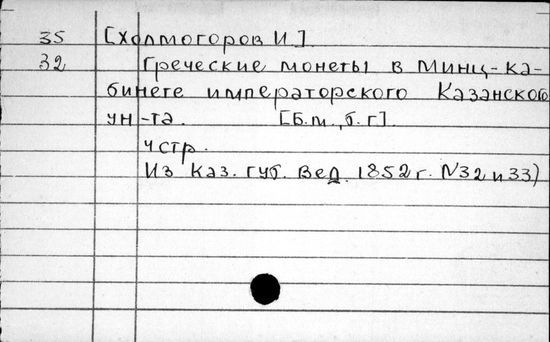 35 [Холмогоров И.]
32 Греческие монеты в Минц-ка-
бинете императорского Казанского
ун-та. [Б.м., б.г].
4 стр.
Из Каз. губ. Вед. 1852 г. N32 и 33)